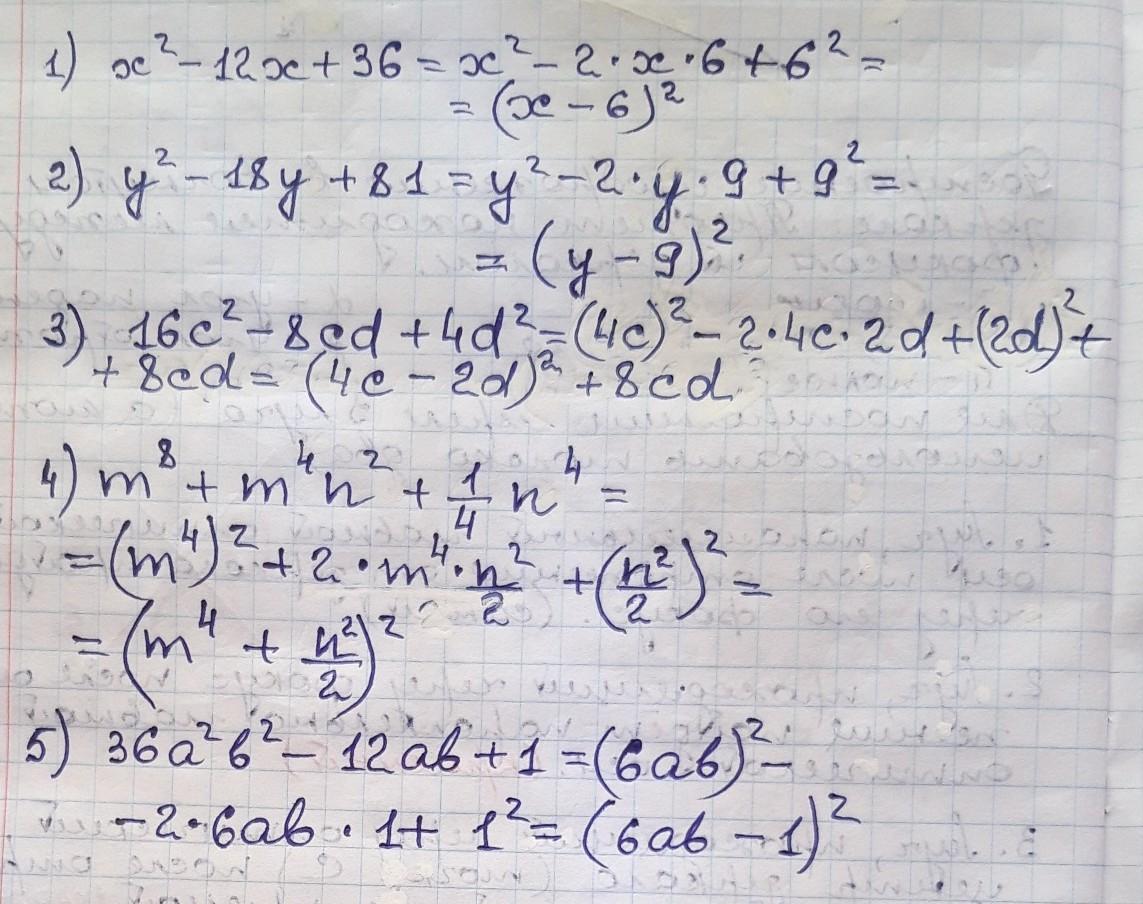 1) x² - 12x + 36 = x² - 2·x·6 + 6² =
= (x - 6)²
2) y² - 18y + 81 = y² - 2·y·9 + 9² =
= (y - 9)²
3) 16c² - 8cd + 4d² = (4c)² - 2·4c·2d + (2d)² +
+ 8cd = (4c - 2d)² + 8cd
4) m⁸ + m⁴n² + 1/4 n⁴ =
= (m⁴)² + 2·m⁴·n²/2 + (n²/2)² =
= (m⁴ + n²/2)²
5) 36a²b² - 12ab + 1 = (6ab)² -
- 2·6ab·1 + 1² = (6ab - 1)²